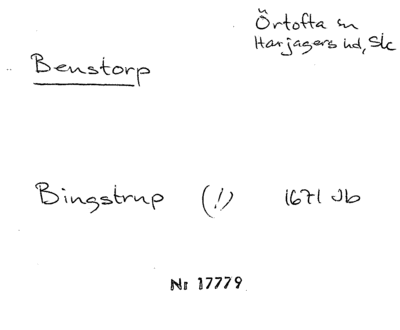 Örtofta sn
Harjagers hd, Sk
Benstorp
Bingstrup (!) 1671 Jb
Nr 17779